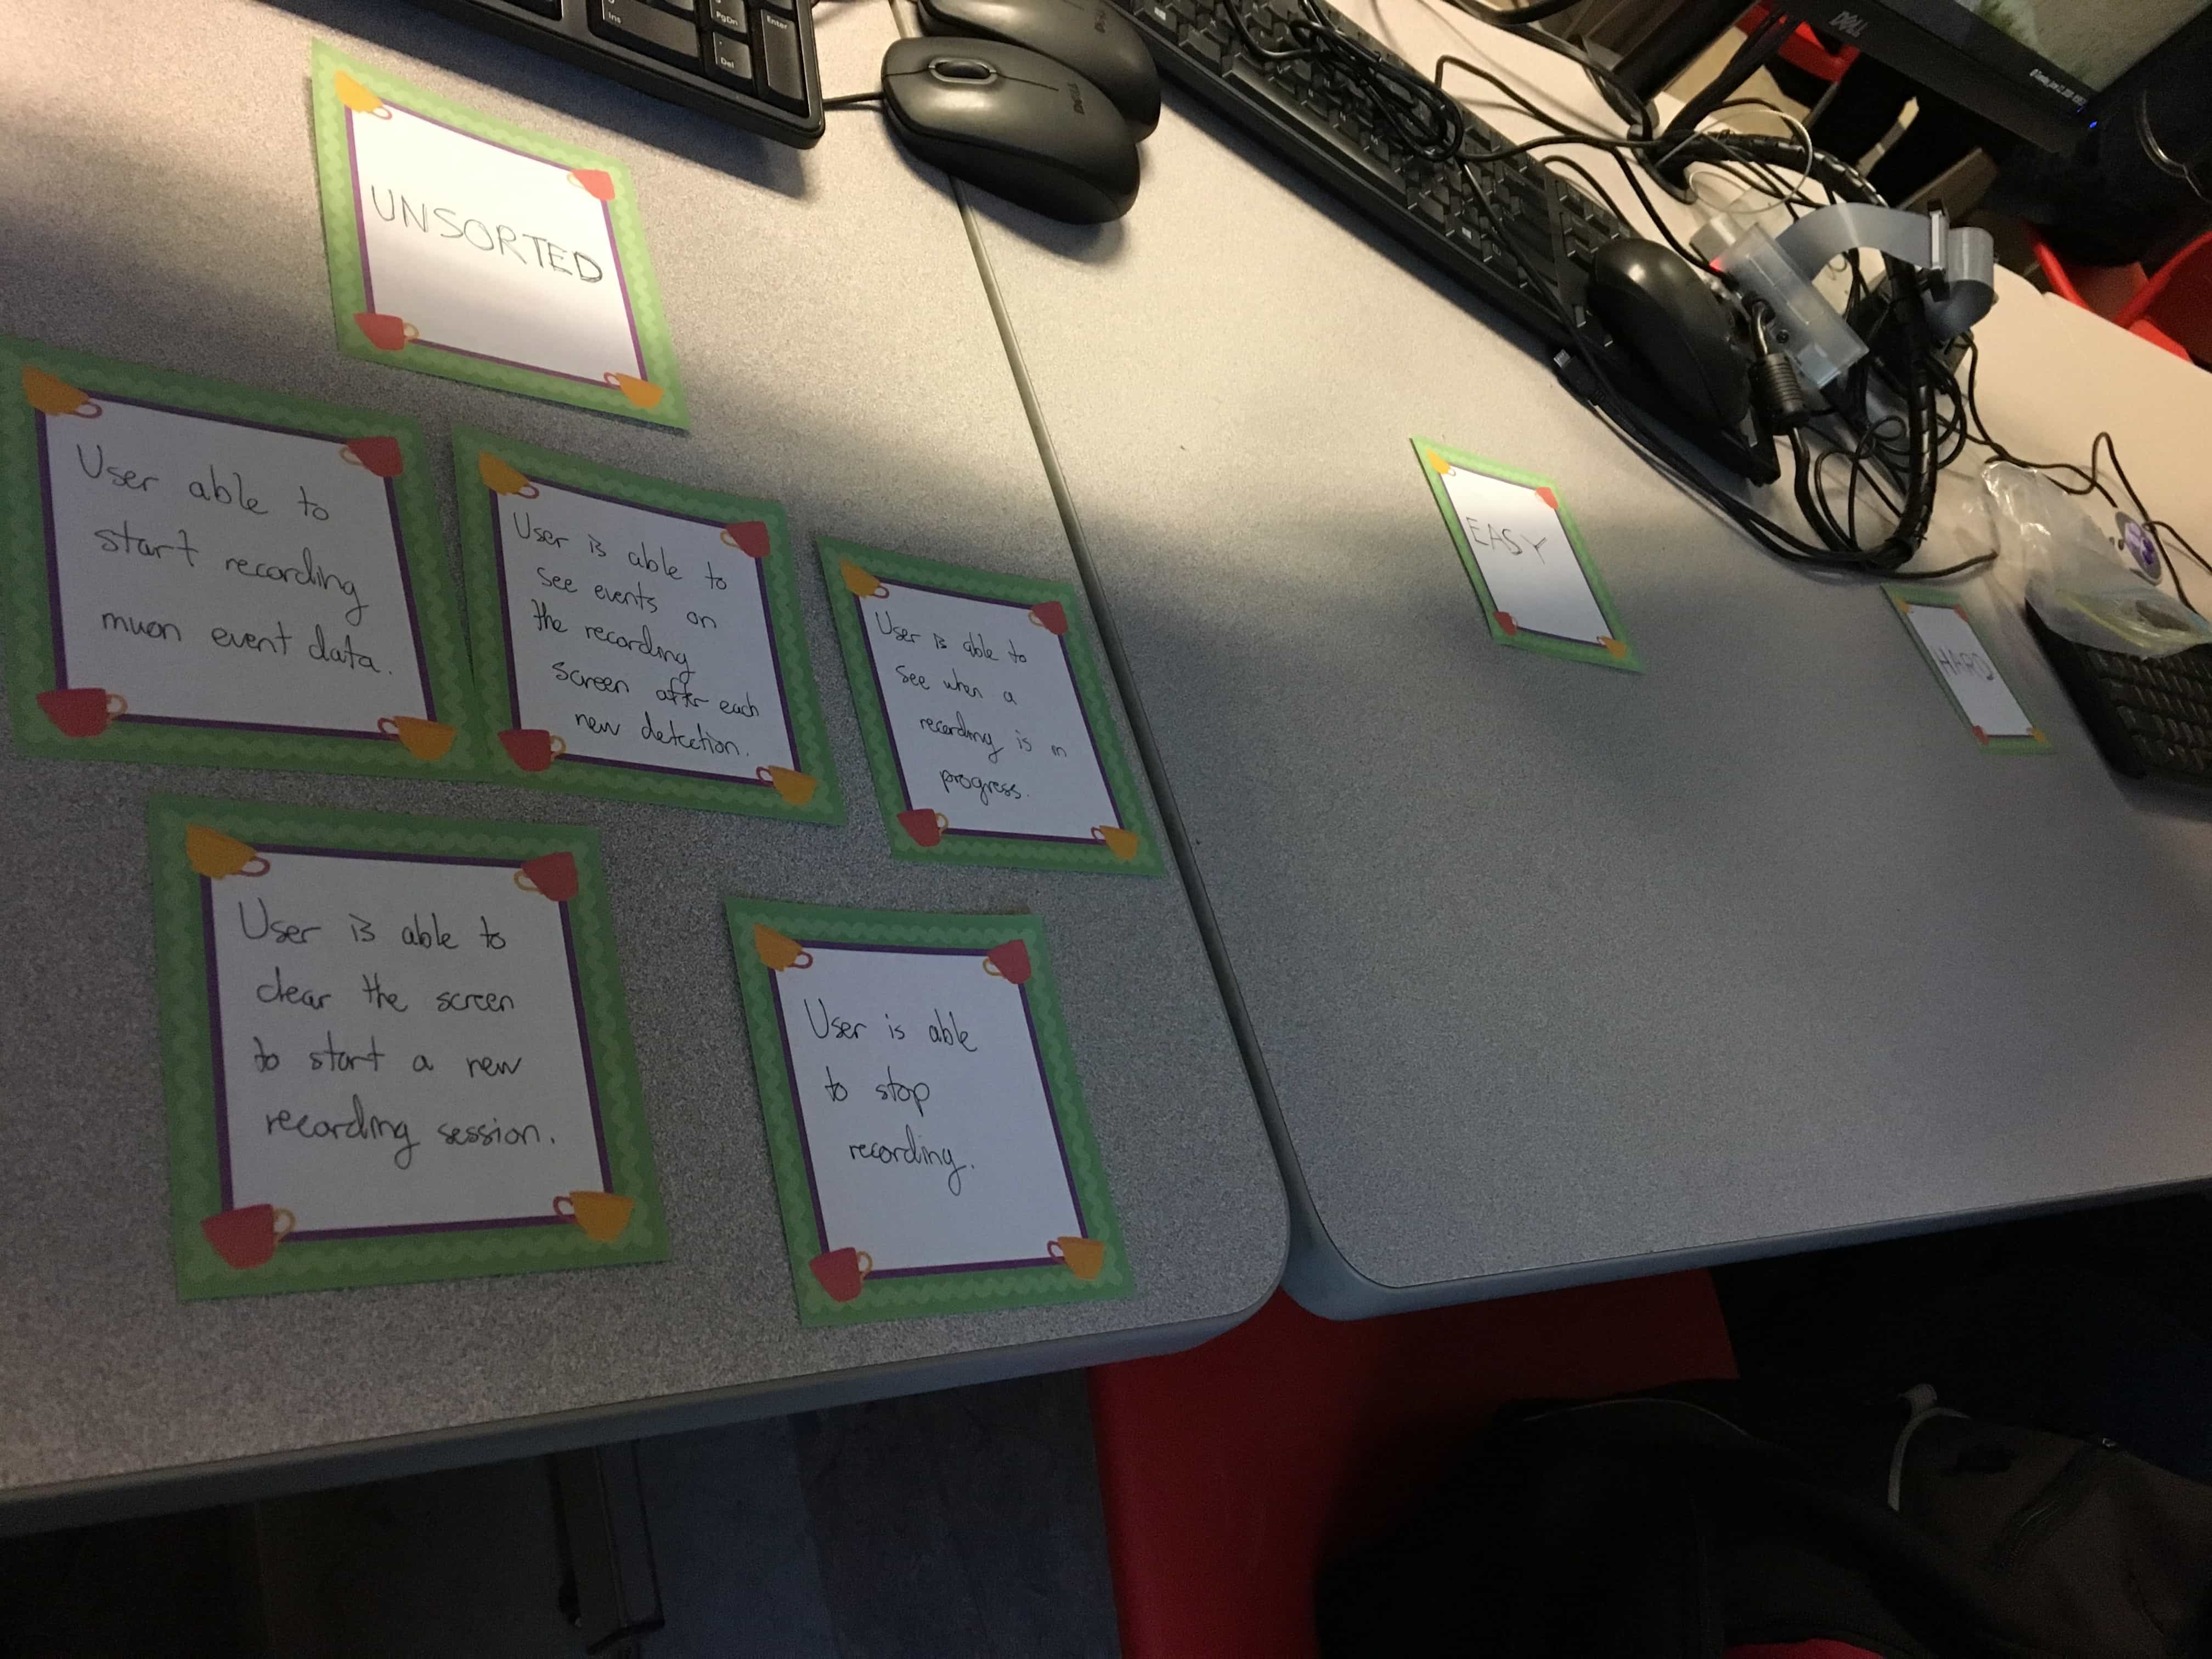 UNSORTED
User able to
start recording
muon event data.
User is able to
see events on
the recording
screen after each
new detection.
User is able to
see when a
recording is in
progress.
User is able to
clear the screen
to start a new
recording session.
User is able
to stop
recording.
EASY
HARD
Ins
PgDn
Enter
Del
DELL
DELL